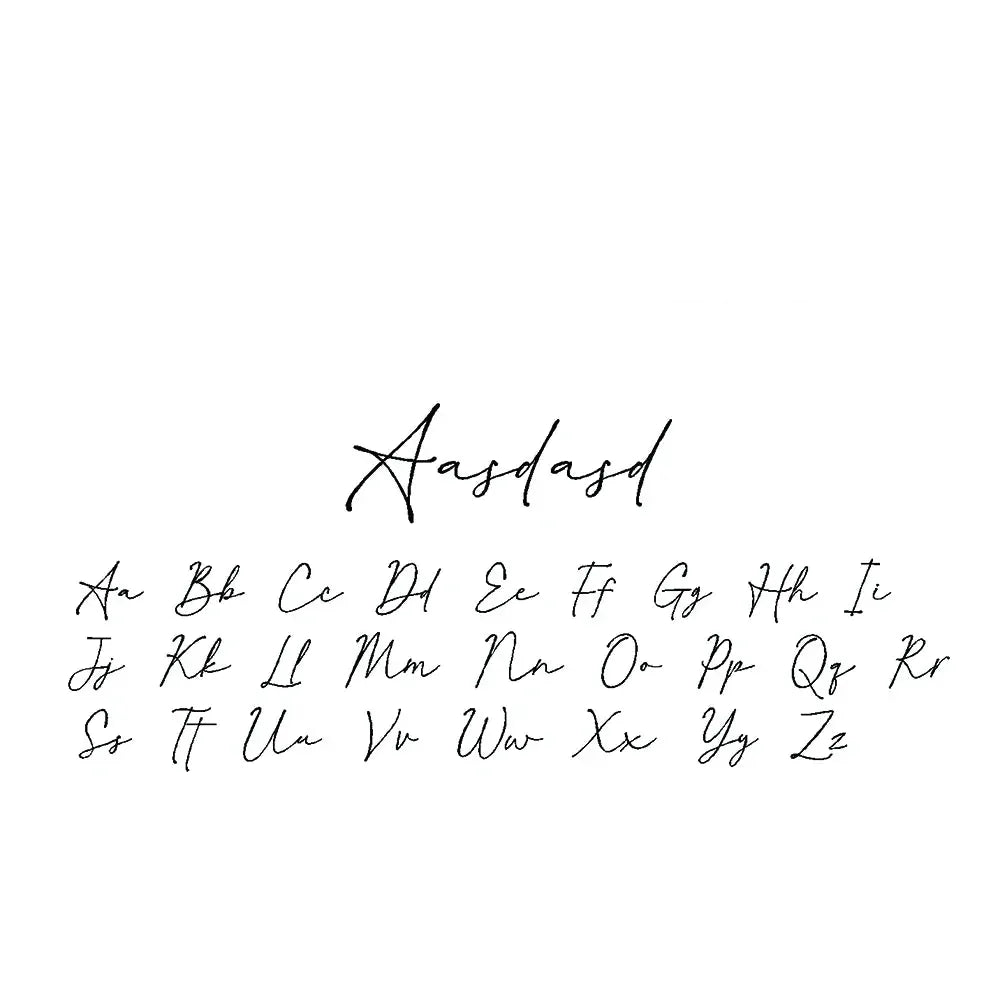 Aasdasd
Aa Bb Cc Dd Ee Ff Gg Hh Ii
Jj Kk Ll Mm Nn Oo Pp Qq Rr
Ss Tt Uu Vv Ww Xx Yy Zz